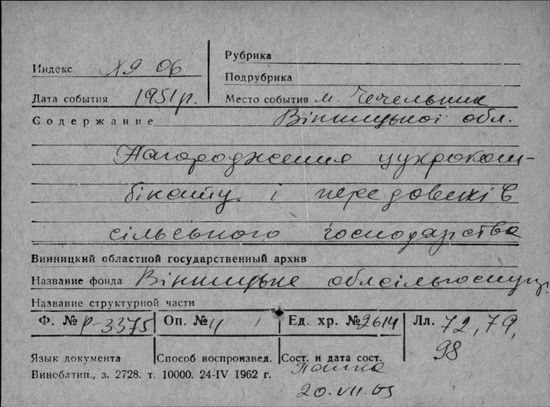 Рубрика
Индекс XЯ 06
Подрубрика
Дата события 1951р.
Место события м. Чечельник
Содержание Вінницької обл.
Нагородження цукроком-
бінату і передовиків
сільського господарства
Винницкий областной государственный архив
Название фонда Вінницьке облсільгоспупр.
Название структурной части
Ф. № Р-3375 Оп. № 4 Ед. хр. № 2614 Лл. 72, 79,
98
Язык документа Способ воспроизвед. Сост. и дата сост.
Виноблтип., з. 2728. т. 10000. 24-IV 1962 г.
20.VII.65